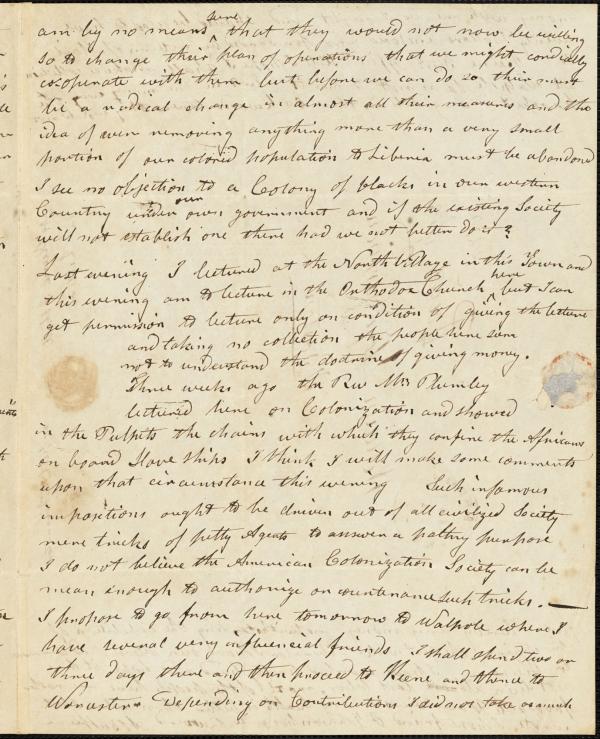 am by no means sure that they would not now be willing
so to change their plan of operations that we might cordially
cooperate with them but before we can do so their must
be a radical change in almost all their measures and the
idea of ever removing anything more than a very small
portion of our colored population to Liberia must be abandoned
I see no objection to a Colony of blacks in our western
Country under our own government and if the existing Society
will not establish one there had we not better do it?
Last evening I lectured at the North Village in this Town and
this evening am to lecture in the Orthodox Church here but I can
get permission to lecture only on condition of giving the lecture
and taking no collection the people here seem
not to understand the doctrine of giving money.
Three weeks ago the Rev Mr Plumley
lectured here on Colonization and showed
in the Pulpits the chains with which they confine the Africans
on board Slave Ships I think I will make some comments
upon that circumstance this evening Such infamous
impositions ought to be driven out of all civilized Society
mere tricks of petty Agents to answer a paltry purpose
I do not believe the American Colonization Society can be
mean enough to authorize or countenance such tricks. —
I propose to go from here tomorrow to Walpole where I
have several very influencial friends I shall spend two or
three days there and then proceed to Keene and thence to
Worcester. Depending on Contributions I did not take as much